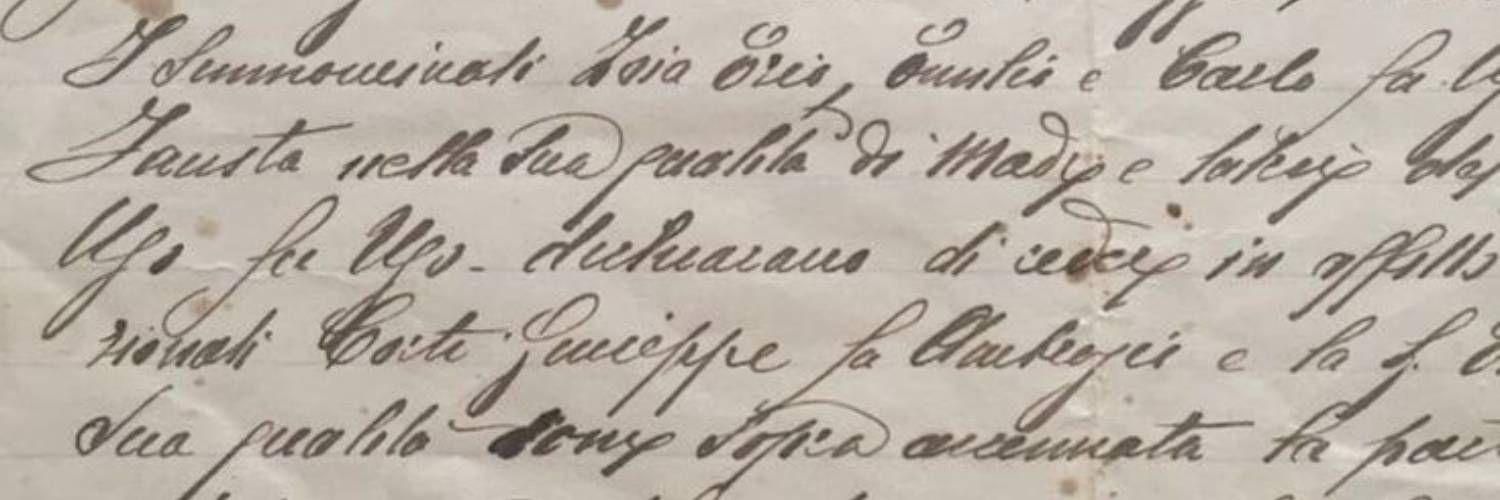 I summenzionati Isia Elvio, Emilio e Carlo fu U
Fausta nella sua qualità di Madre e tutrice del
Ugo fu Ugo - dichiarano di cedere in affitto
zionati Corti Giuseppe fu Ambrogio e la S.
sua qualità come sopra accennata la part